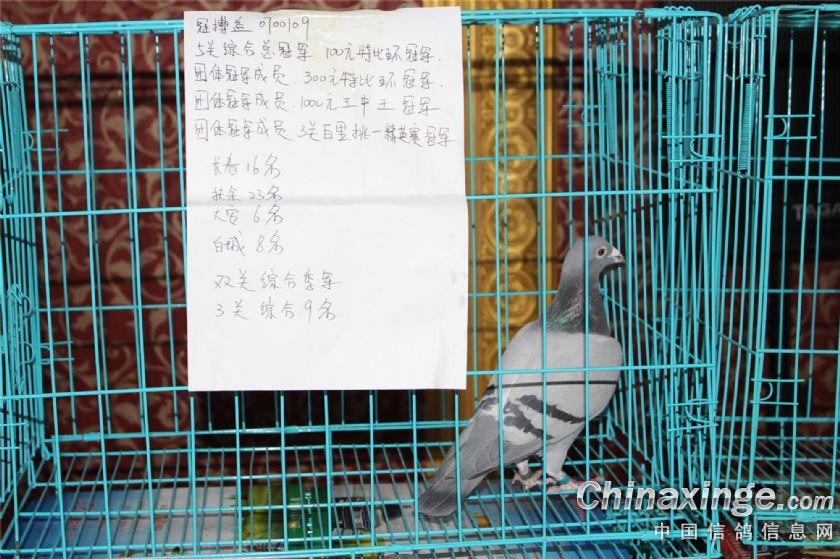 冠搏益 0700109
5关综合总冠军 100元特比环冠军.
团体冠军成员. 300元特比环冠军.
团体冠军成员. 1000元王中王冠军
团体冠军成员 3关百里挑一精英赛冠军
长春16名
扶余23名
大安6名
白城8名
双关综合季军
3关综合9名.
TAGA
Chinaxinge.com
中国信鸽信息网